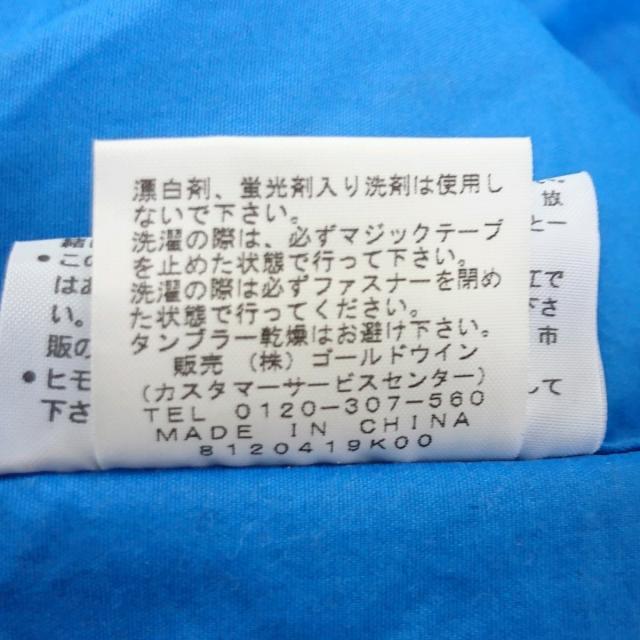 漂白剤、蛍光剤入り洗剤は使用し
ないで下さい。
洗濯の際は、必ずマジックテープ
を止めた状態で行って下さい。
洗濯の際は必ずファスナーを閉め
た状態で行ってください。
タンブラー乾燥はお避け下さい。
販売 (株) ゴールドウイン
(カスタマーサービスセンター)
TEL 0120-307-560
MADE IN CHINA
8120419K00
•この
はお
い。
販の
•ヒモ
下さ
放
と一
で
下さ
市
して